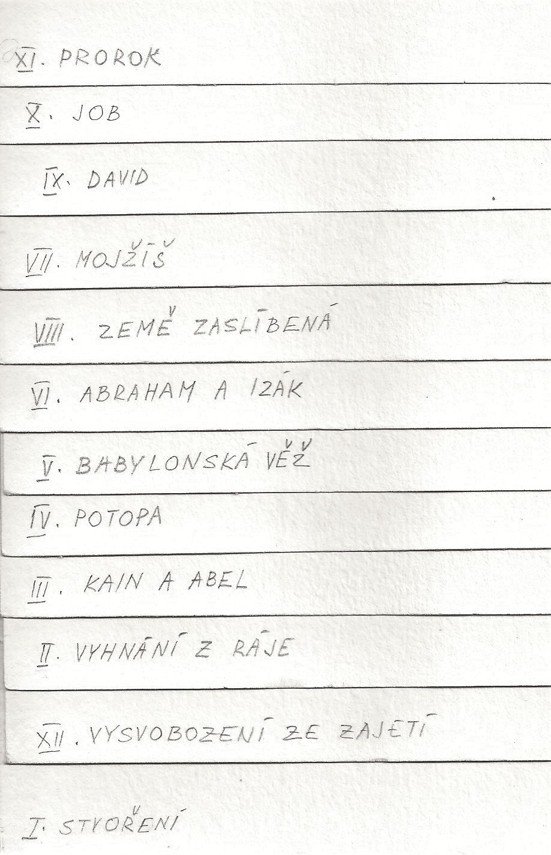 XI. PROROK
X. JOB
IX. DAVID
VII. MOJŽÍŠ
VIII. ZEMĚ ZASLÍBENÁ
VI. ABRAHAM A IZÁK
V. BABYLONSKÁ VĚŽ
IV. POTOPA
III. KAIN A ABEL
II. VYHNÁNÍ Z RÁJE
XII. VYSVOBOZENÍ ZE ZAJETÍ
I. STVOŘENÍ